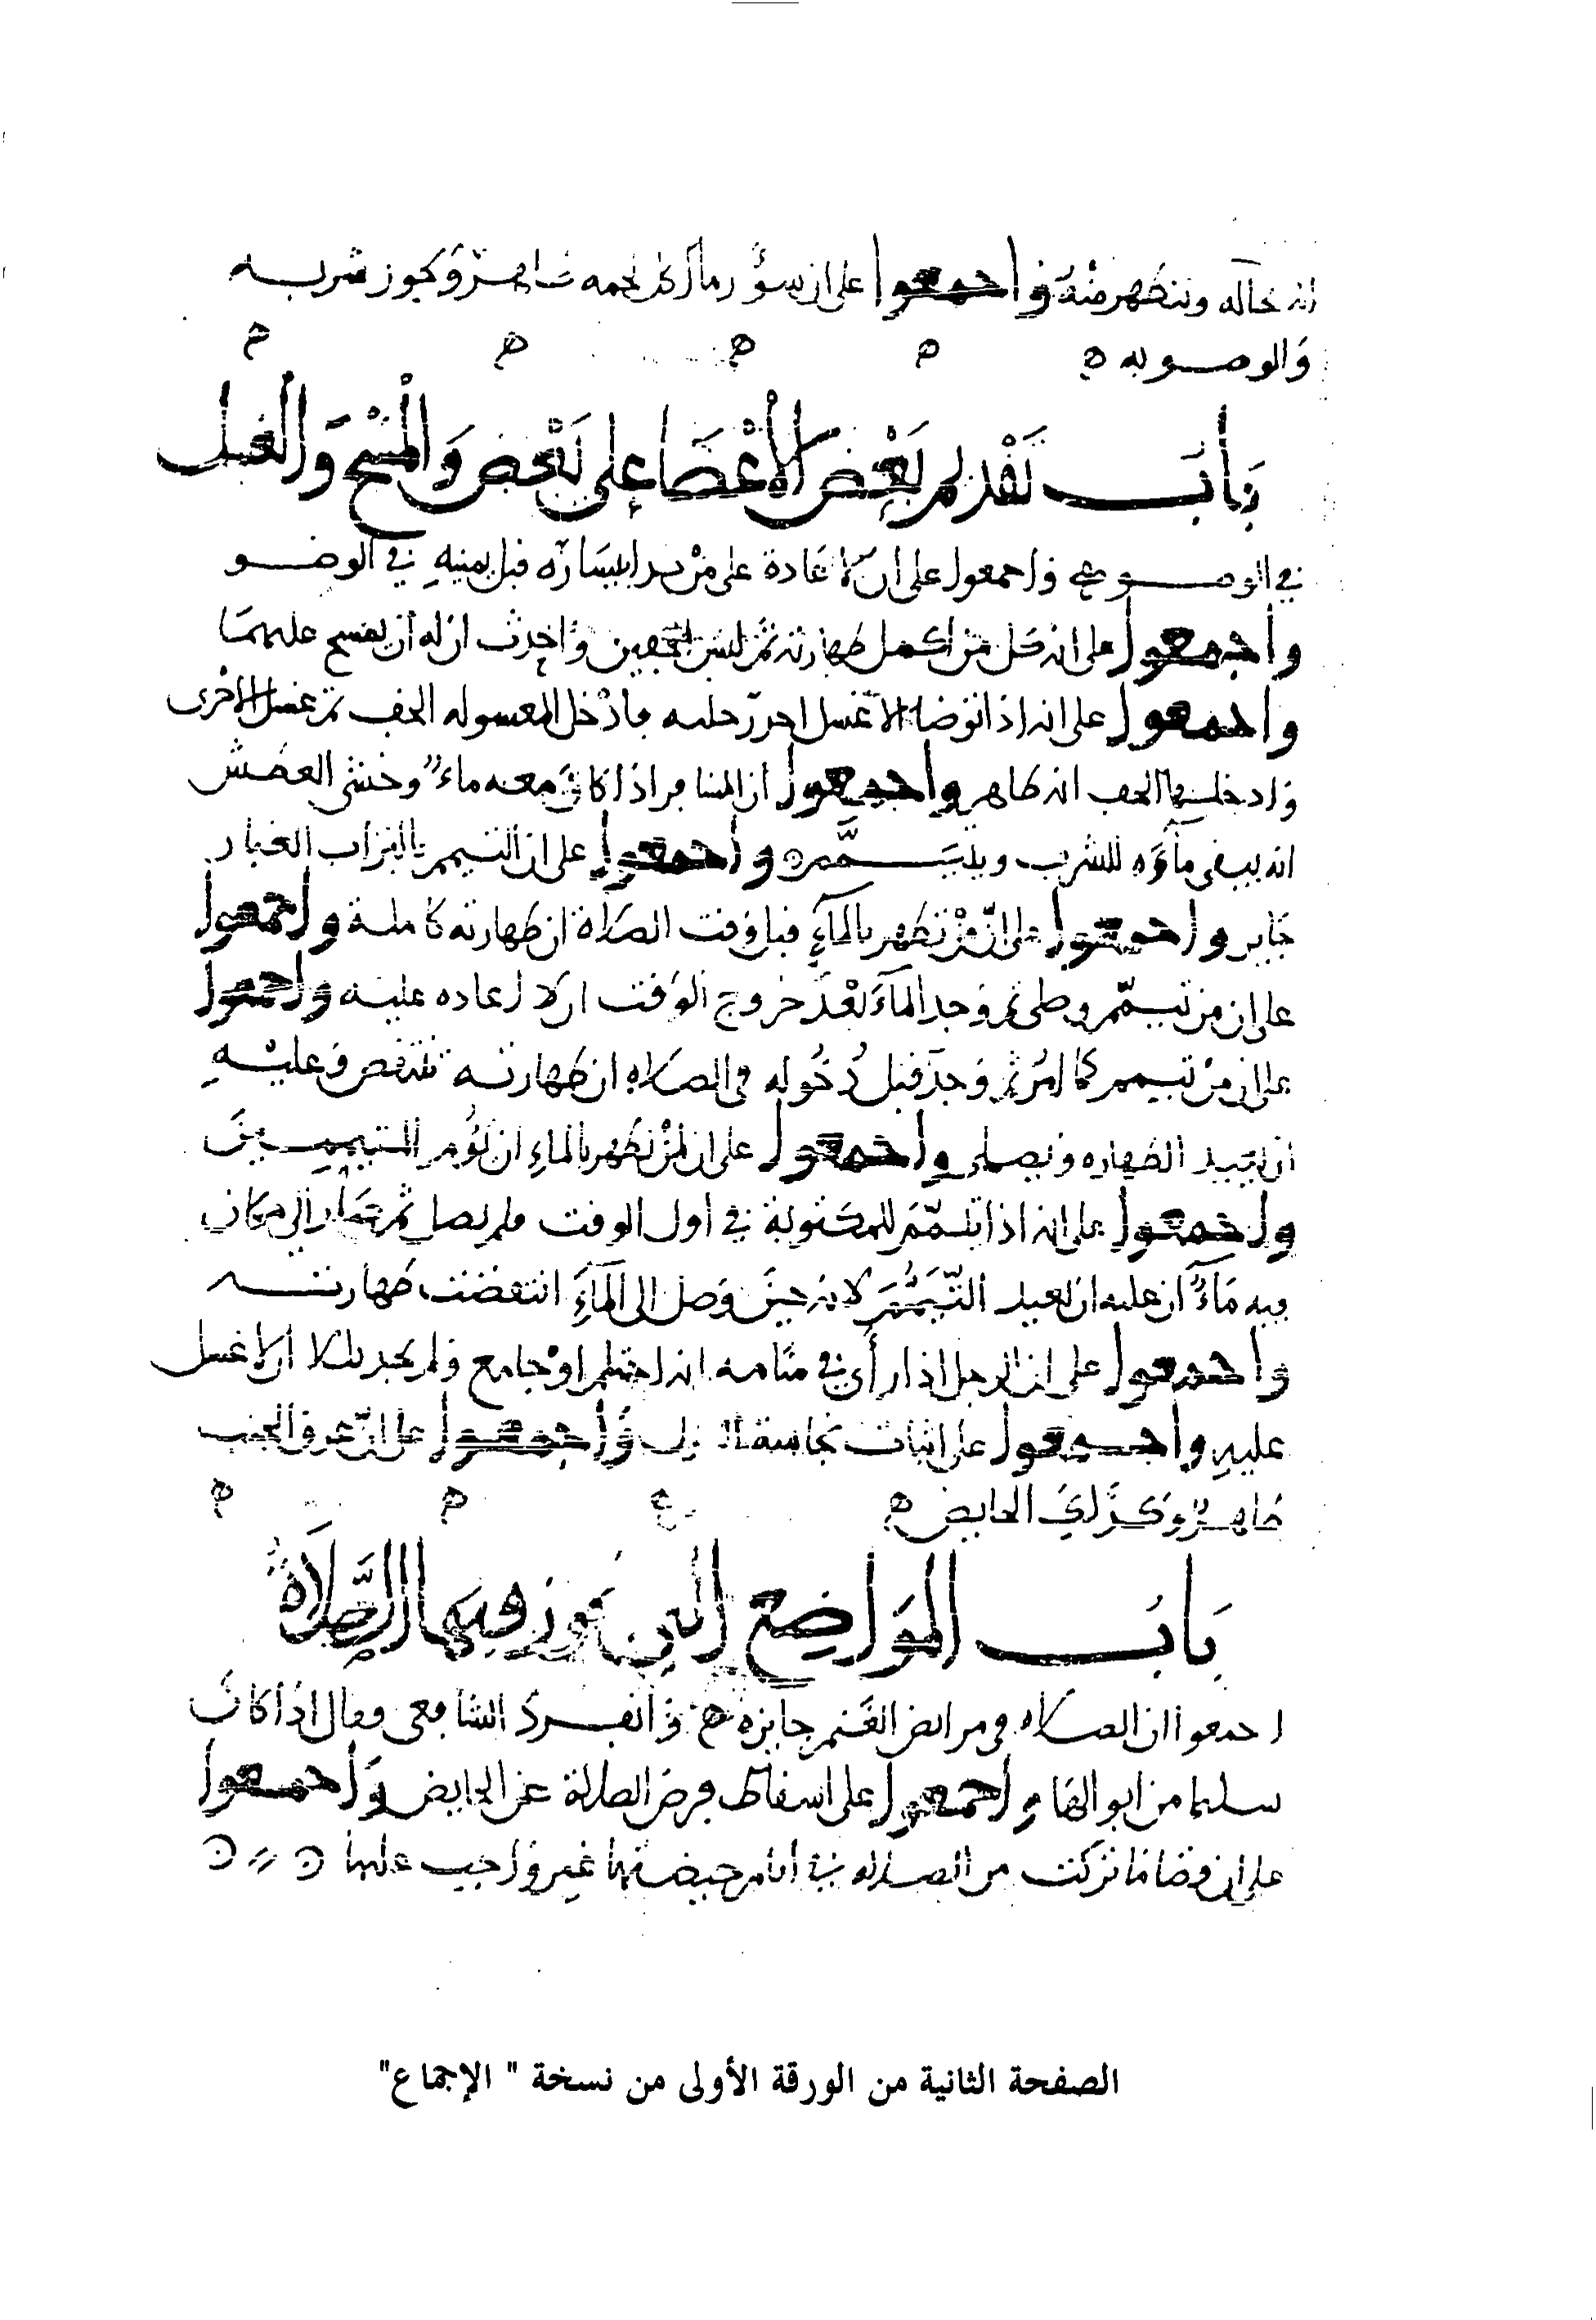 انه بحاله ويتطهر منه واجمعوا على ان سؤر ما اكل لحمه طاهر ويجوز شربه
والوضو به ه
باب تقديم بعض الأعضا على بعض والمسح والغسل
في الوضوء واجمعوا على ان لا اعادة على من بدا بيساره قبل يمينه في الوضو
واجمعوا على انه كل من اكمل طهارته ثم لبس الخفين واحدث ان له أن يمسح عليهما
واجمعوا على انه اذا توضا الا غسل احد رجليه فادخل المغسوله الخف ثم غسل الأخرى
وادخلها الخف انه طاهر واجمعوا ان المسافر اذا كان معه ماء وخشي العطش
انه يبقى ماؤه للشرب ويتيمم ه واجمعوا على ان التيمم بالتراب الغبار
جايز واجمعوا على انّ من تطهر بالماء قبل وقت الصلاة ان طهارته كاملة واجمعوا
على ان من تيمّم وصلى ثم وجد الماء بعد خروج الوقت ان لا اعاده عليه واجمعوا
على ان من تيمم كما امر ثم وجد قبل دخوله في الصلاه ان طهارته تنتقض وعليه
ان يعيد الطهاره ويصلى واجمعوا على ان لمن تطهر بالماء ان يؤم المتيممين
واجمعوا على انه اذا تيمّم للمكتوبة في اول الوقت فلم يصل ثم صار الى مكان
فيه ماء ان عليه ان يعيد التيمم لانه حين وصل الى الماء انتقضت طهارته
واجمعوا على ان الرجل اذا رأى في منامه انه احتلم او جامع ولم يجد بللا ان لا غسل
عليه واجمعوا على اثبات نجاسة البول واجمعوا على انّ عرق الجنب
طاهر وكذلك الحايض ه
باب المواضع التي يجوز فيها الصلاة
اجمعوا ان الصلاه في مرابض الغنم جايزه ه وانفرد الشافعي فقال اذا كان
سليما من ابوالها واجمعوا على اسقاط فرض الصلاة عن الحايض واجمعوا
على ان قضا ما تركت من الصلاه في ايام حيضتها غير واجب عليها
الصفحة الثانية من الورقة الأولى من نسخة " الإجماع"